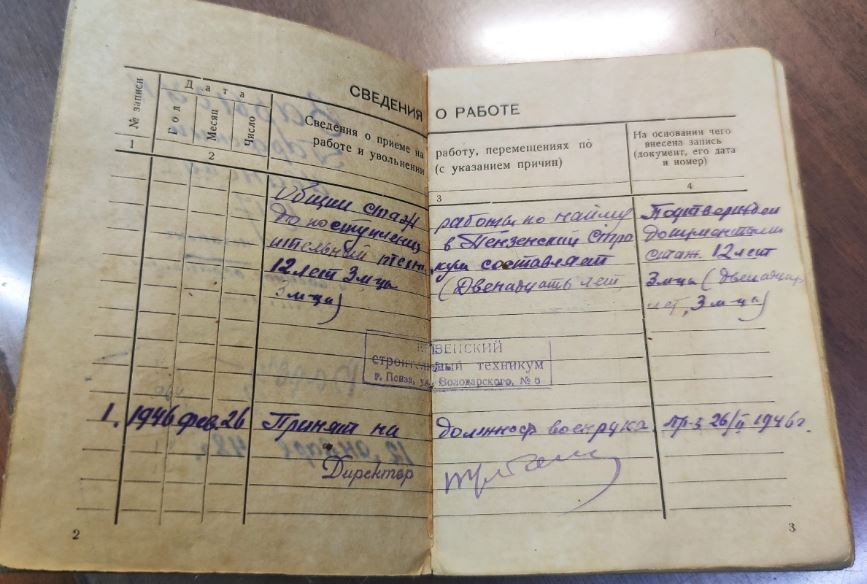 СВЕДЕНИЯ О РАБОТЕ
№ записи
Дата
Год
Месяц
Число
Сведения о приеме на работу, перемещениях по
работе и увольнении (с указанием причин)
На основании чего
внесена запись
(документ, его дата
и номер)
1
2
3
4
Общий стаж работы по найму
до поступления в Пензенский Стро
ительный техникум составляет
12 лет 3 м-ца (Двенадцать лет
3 м-ца)
Подтвержден
документами
стаж 12 лет
3 м-ца (двенадцать
лет, 3 м-ца)
ПЕНЗЕНСКИЙ
строительный техникум
г. Пенза, ул. Володарского, № 5
1. 1946 фев. 26 Принят на должность военрука. пр-з 26/II 1946 г.
Директор
2
3